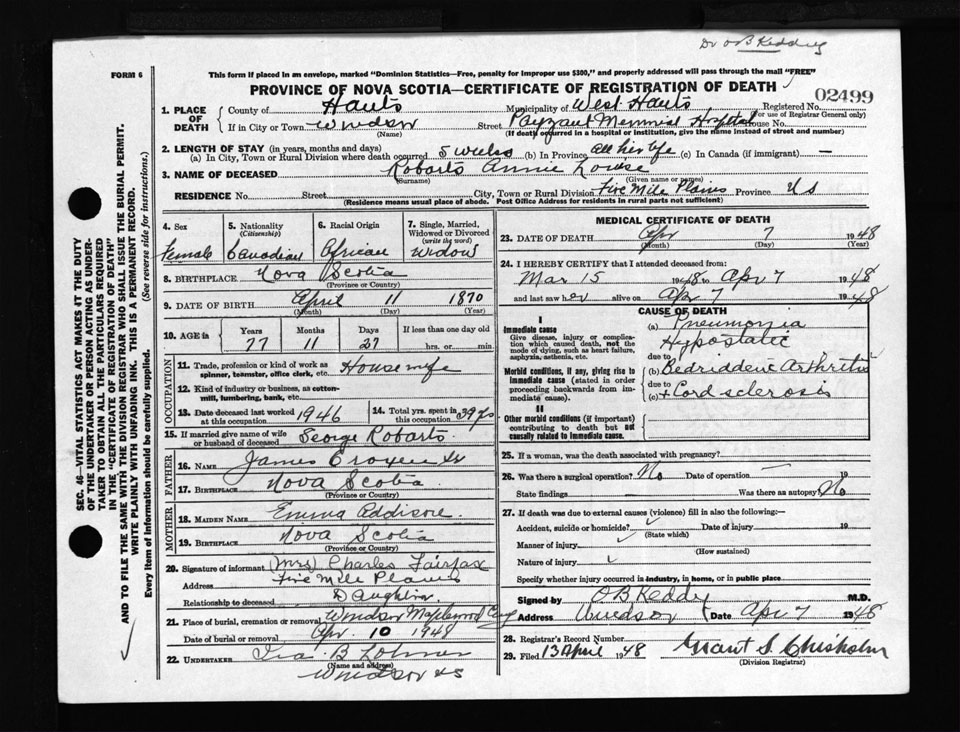 Dr O B Keddy
FORM 6
This form if placed in an envelope, marked "Dominion Statistics—Free, penalty for improper use $300," and properly addressed will pass through the mail "FREE"
PROVINCE OF NOVA SCOTIA—CERTIFICATE OF REGISTRATION OF DEATH
02499
1. PLACE OF DEATH
County of Hants Municipality of West Hants Registered No.
(For use of Registrar General only)
If in City or Town Windsor Street Payzant Memorial Hospital House No.
(Name) (If death occurred in a hospital or institution, give the name instead of street and number)
2. LENGTH OF STAY (in years, months and days)
(a) In City, Town or Rural Division where death occurred 5 weeks (b) In Province All her life (c) In Canada (if immigrant) —
3. NAME OF DECEASED Robarts Annie Louise
(Surname) (Given name or names)
RESIDENCE No. Street City, Town or Rural Division Five Mile Plains Province N S
(Residence means usual place of abode. Post Office Address for residents in rural parts not sufficient)
4. Sex Female
5. Nationality (Citizenship) Canadian
6. Racial Origin African
7. Single, Married, Widowed or Divorced (write the word) Widow
8. BIRTHPLACE Nova Scotia
(Province or Country)
9. DATE OF BIRTH April 11 1870
(Month) (Day) (Year)
10. AGE in Years Months Days If less than one day old
77 11 27 hrs. or min.
OCCUPATION
11. Trade, profession or kind of work as spinner, teamster, office clerk, etc. Housewife
12. Kind of industry or business, as cotton-mill, lumbering, bank, etc.
13. Date deceased last worked at this occupation 1946
14. Total yrs. spent in this occupation 39 yrs
15. If married give name of wife or husband of deceased George Robarts
FATHER
16. NAME James
17. BIRTHPLACE Nova Scotia
(Province or Country)
MOTHER
18. MAIDEN NAME Emma Addison
19. BIRTHPLACE Nova Scotia
(Province or Country)
20. Signature of informant (Mrs) Charles Fairfax
Address Five Mile Plains
Relationship to deceased Daughter
21. Place of burial, cremation or removal Windsor Maplewood Cem
Date of burial or removal Apr. 10 1948
22. UNDERTAKER Ira B
(Name and address)
Windsor NS
MEDICAL CERTIFICATE OF DEATH
23. DATE OF DEATH Apr 7 1948
(Month) (Day) (Year)
24. I HEREBY CERTIFY that I attended deceased from:
Mar 15 1948 to Apr 7 1948
and last saw her alive on Apr 7 1948
CAUSE OF DEATH
I
Immediate cause
Give disease, injury or complication which caused death, not the mode of dying, such as heart failure, asphyxia, asthenia, etc.
(a) Pneumonia
Hypostatic
due to
Morbid conditions, if any, giving rise to immediate cause (stated in order proceeding backwards from immediate cause).
(b) Bedridden Arthritis
due to
(c) + Cord sclerosis
II
Other morbid conditions (if important) contributing to death but not causally related to immediate cause.
25. If a woman, was the death associated with pregnancy?
26. Was there a surgical operation? No Date of operation — 19
State findings Was there an autopsy? No
27. If death was due to external causes (violence) fill in also the following:
Accident, suicide or homicide? Date of injury 19
(State which)
Manner of injury
(How sustained)
Nature of injury
Specify whether injury occurred in industry, in home, or in public place
Signed by O B Keddy M.D.
Address Windsor Date Apr 7 1948
28. Registrar's Record Number
29. Filed 13 April 1948 Grant S. Chisholm
(Division Registrar)
SEC. 46—VITAL STATISTICS ACT MAKES IT THE DUTY
OF THE UNDERTAKER OR PERSON ACTING AS UNDER-
TAKER TO OBTAIN ALL THE PARTICULARS REQUIRED
IN THE "CERTIFICATE OF REGISTRATION OF DEATH"
AND TO FILE THE SAME WITH THE DIVISION REGISTRAR WHO SHALL ISSUE THE BURIAL PERMIT.
WRITE PLAINLY WITH UNFADING INK. THIS IS A PERMANENT RECORD.
Every item of information should be carefully supplied. (See reverse side for instructions.)